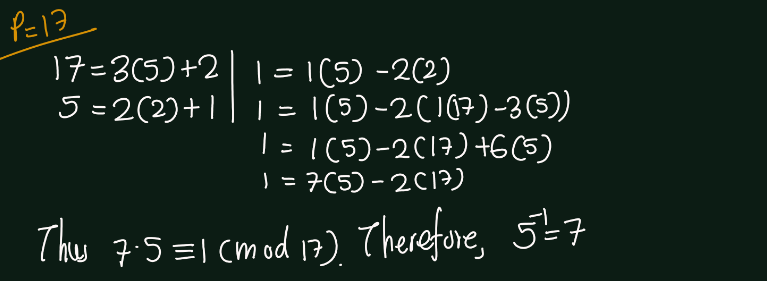 P=17
17=3(5)+2 | 1 = 1(5) -2(2)
5 =2(2)+1 | 1 = 1(5)-2(1(17)-3(5))
1 = 1(5)-2(17)+6(5)
1 = 7(5)-2(17)
Thus 7·5≡1 (mod 17). Therefore, 5⁻¹=7